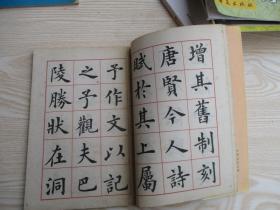 增其舊制刻
唐賢今人詩
賦於其上屬
予作文以記
之予觀夫巴
陵勝狀在洞